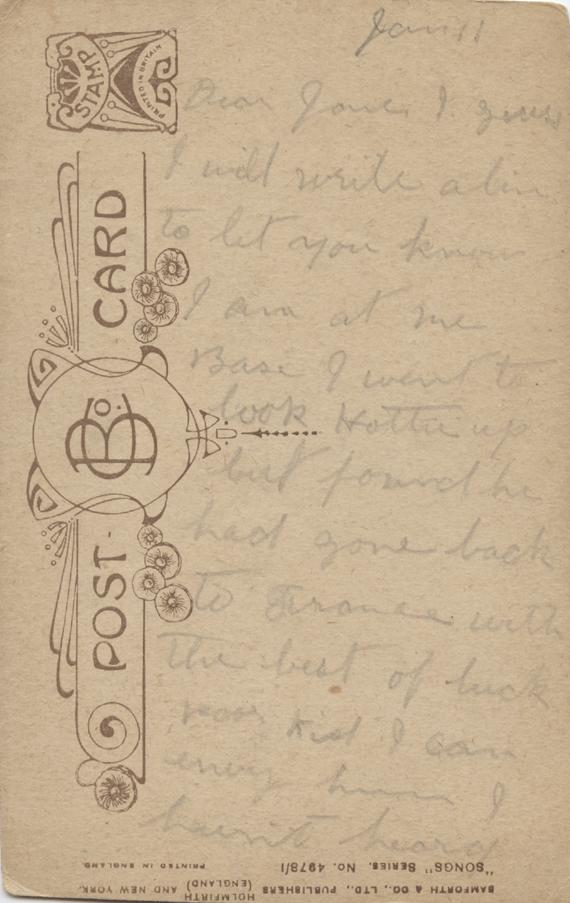 Jan 11
Dear Jane, I guess
I will write a line
to let you know
I am at me
Base I went to
look Hottie up
but found he
had gone back
to France with
the best of luck
poor kid I can
envy him I
havn't heard
STAMP
PRINTED IN BRITAIN
POST-CARD
B & Co.
"SONGS" SERIES. No. 4978/1
PRINTED IN ENGLAND.
BAMFORTH & CO., LTD., PUBLISHERS HOLMFIRTH (ENGLAND) AND NEW YORK.